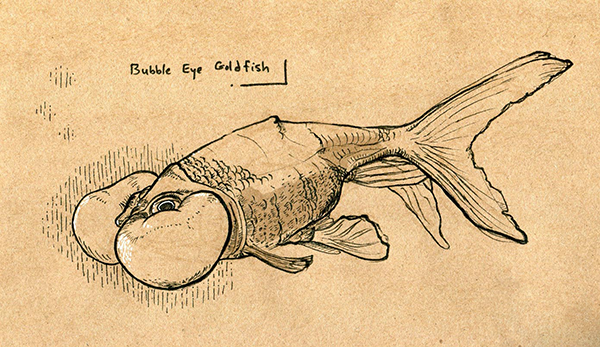 Bubble Eye Goldfish